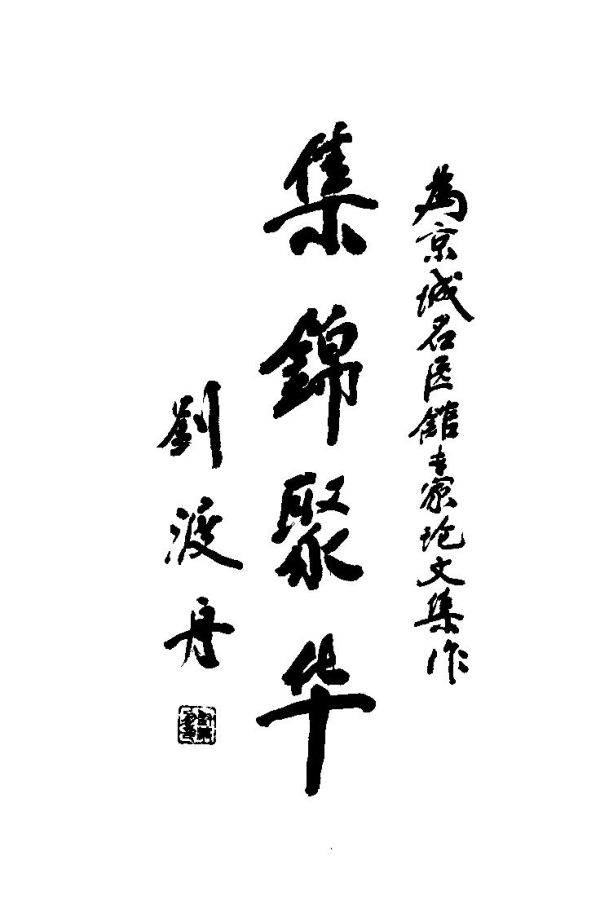 為京城名医館专家论文集作
集錦聚华
劉渡舟